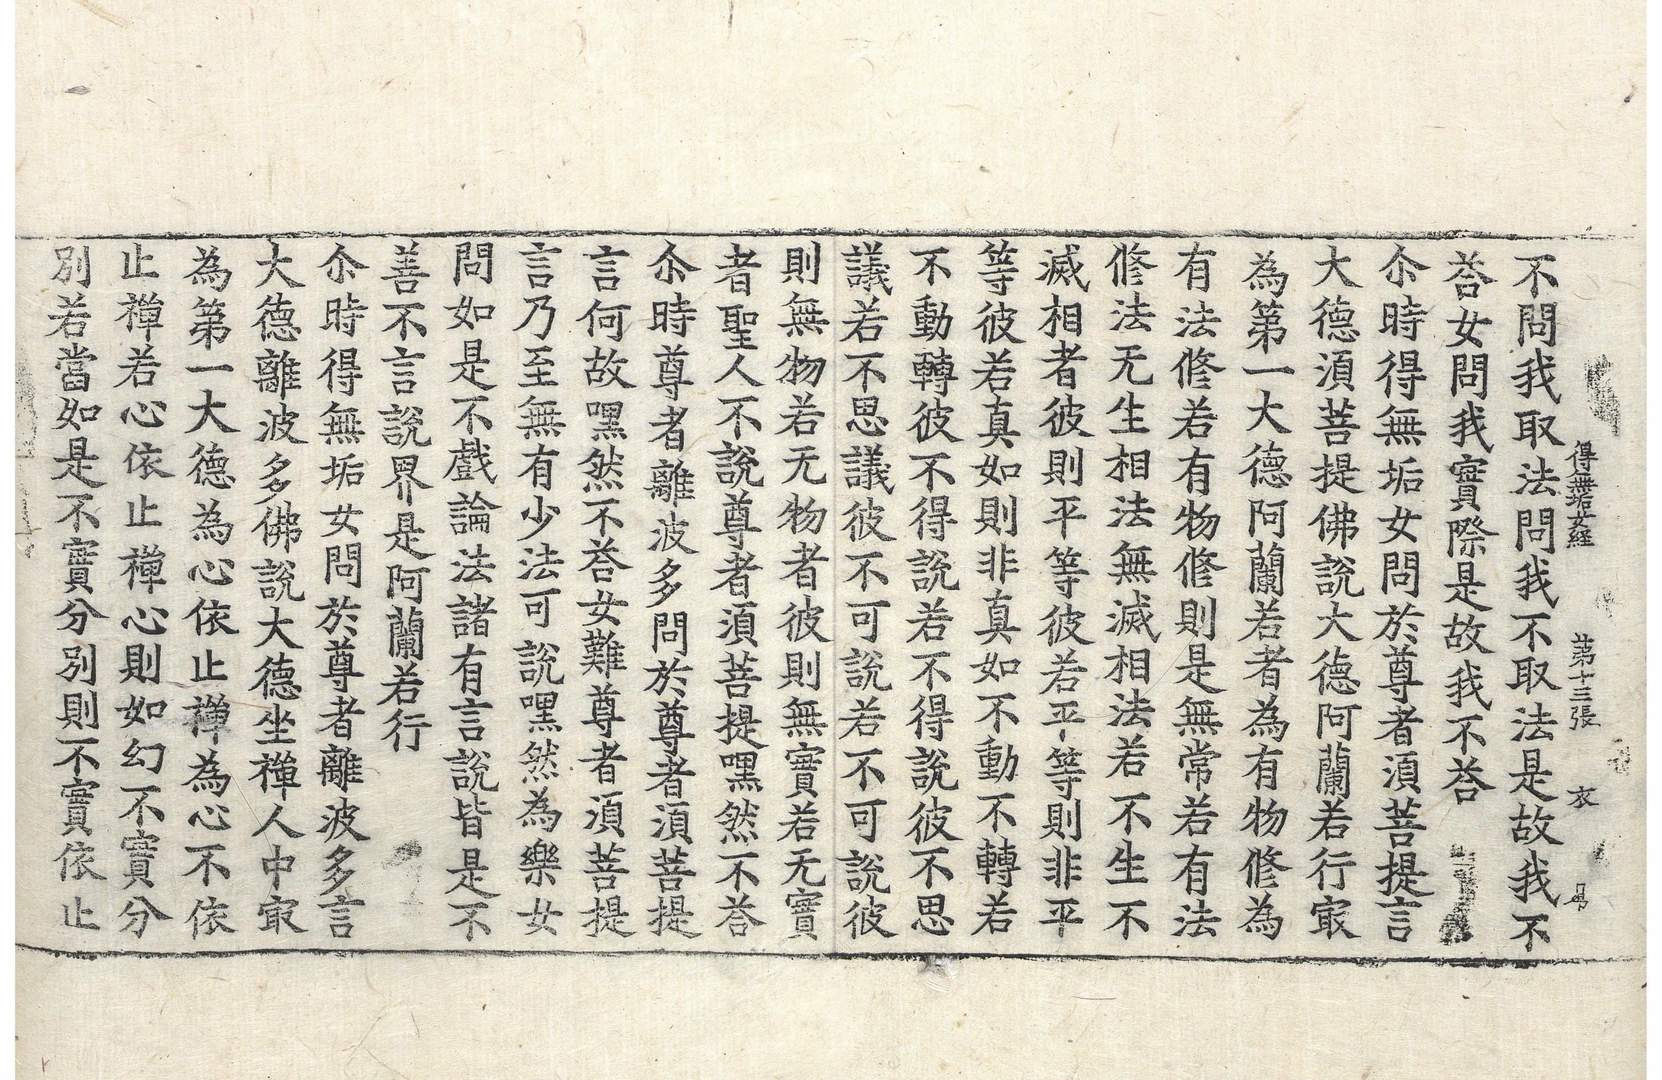 得無垢女経 第十三張 衣
不問我取法問我不取法是故我不
荅女問我實際是故我不荅
尒時得無垢女問於尊者湏菩提言
大德湏菩提佛說大德阿蘭若行冣
為第一大德阿蘭若者為有物修為
有法修若有物修則是無常若有法
修法无生相法無滅相法若不生不
滅相者彼則平等彼若平等則非平
等彼若真如則非真如不動不轉若
不動轉彼不得說若不得說彼不思
議若不思議彼不可說若不可說彼
則無物若无物者彼則無實若无實
者聖人不說尊者湏菩提嘿然不荅
尒時尊者離波多問於尊者湏菩提
言何故嘿然不荅女難尊者湏菩提
言乃至無有少法可說嘿然為樂女
問如是不戲論法諸有言說皆是不
善不言說界是阿蘭若行
尒時得無垢女問於尊者離波多言
大德離波多佛說大德坐禪人中冣
為第一大德為心依止禪為心不依
止禪若心依止禪心則如幻不實分
別若當如是不實分別則不實依止